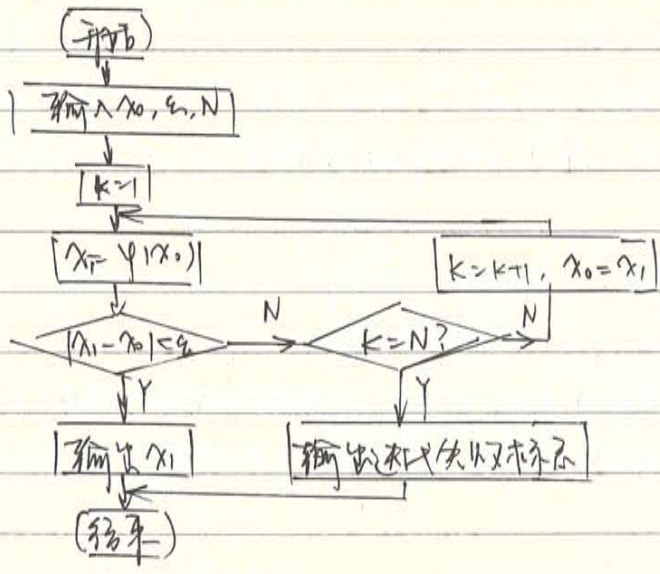 开始
输入 x₀, ε, N
k=1
x₁=φ(x₀)
k=k+1, x₀=x₁
|x₁-x₀|<ε
N
k=N?
N
Y
Y
输出 x₁
输出迭代失败标志
结束